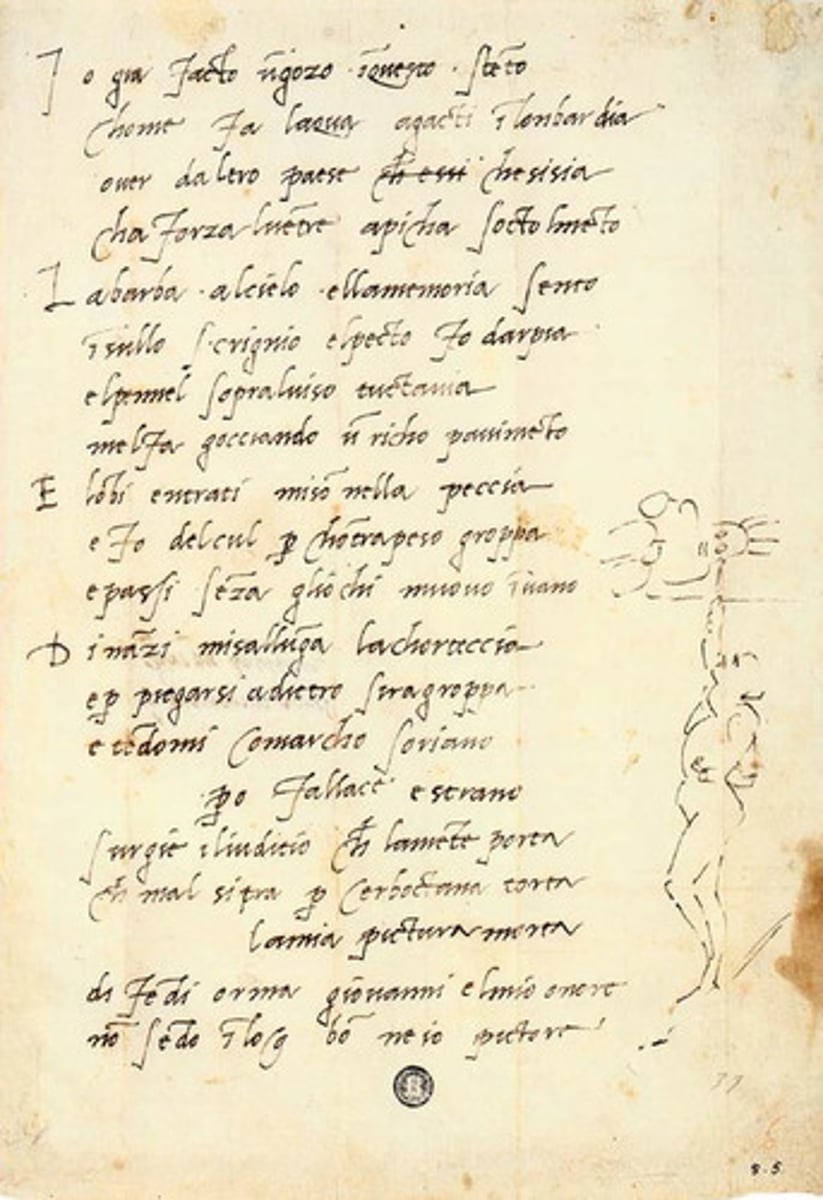 Io gia facto ū gozo ī questo stēto
chome fa laqua agacti ī lonbardia
over daltro paese ch̄ essi che sisia
cha forza lvētre apicha socto lmēto
La barba alcielo ellamemoria sento
ī sullo scrignio elpecto fo darpia
elpennel sopraluiso tuctavia
melfa gocciando ū richo pavimēto
E lōbi entrati misō nella peccia
e fo delcul p̱ chōtrapeso groppa
e passi sēza gliochi muovo īvano
Dināzi misallūga lachorteccia
e p̱ piegarsi adietro siragroppa
e tēdomi comarcho soriano
p̱o fallace e strano
surgie iliuditio ch̄ lamēte porta
ch̄ mal si tra p̱ cerboctana torta
lamia pictura morta
difēdi orma giovanni elmio onore
nō sēdo ī loco bō ne io pictore
8.5